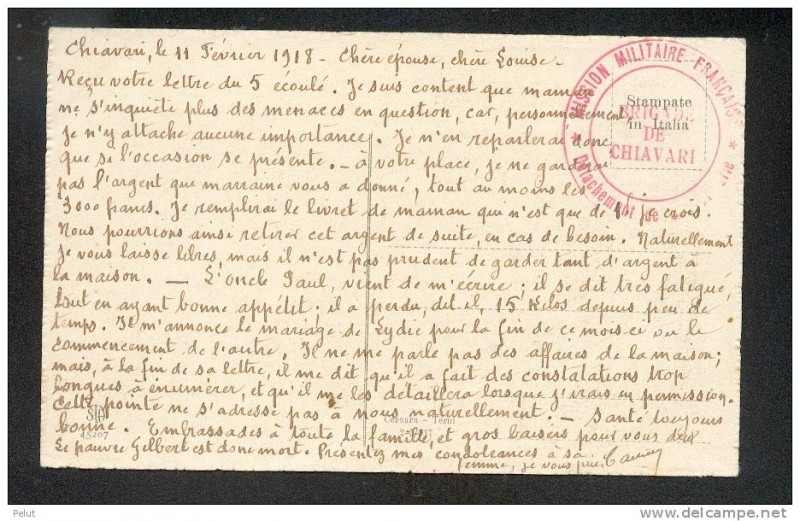 Chiavari, le 11 Février 1918 - Chère épouse, chère Louise -
Reçu votre lettre du 5 écoulé. Je suis content que maman
ne s'inquiète plus des menaces en question, car, personnellement
je n'y attache aucune importance. Je n'en reparlerai donc
que si l'occasion se présente. - à votre place, je ne garderai
pas l'argent que marraine vous a donné, tout au moins les
3000 francs. Je remplirai le livret de maman qui n'est que de je crois.
Nous pourrions ainsi retirer cet argent de suite, en cas de besoin. Naturellement
Je vous laisse libres, mais il n'est pas prudent de garder tant d'argent à
la maison. - L'oncle Paul, vient de m'écrire ; il se dit très fatigué,
tout en ayant bonne appétit ; il a perdu, dit-il, 15 kilos depuis peu de
temps. Il m'annonce le mariage de Lydie pour la fin de ce mois-ci ou le
commencement de l'autre. Il ne me parle pas des affaires de la maison ;
mais, à la fin de sa lettre, il me dit qu'il a fait des constatations trop
longues à énumérer, et qu'il me les détaillera lorsque j'irais en permission.
Cette pointe ne s'adresse pas à nous naturellement. - Santé toujours
bonne. Embrassades à toute la famille, et gros baisers pour vous deux
Le pauvre Gilbert est donc mort. Présentez mes condoléances à sa
femme, je vous prie.
MISSION MILITAIRE FRANÇAIS
Stampate
in Italia
BRIGADE
DE
CHIAVARI
Détachement de
45207
Censura - Terni
Pelut
delcampe.net